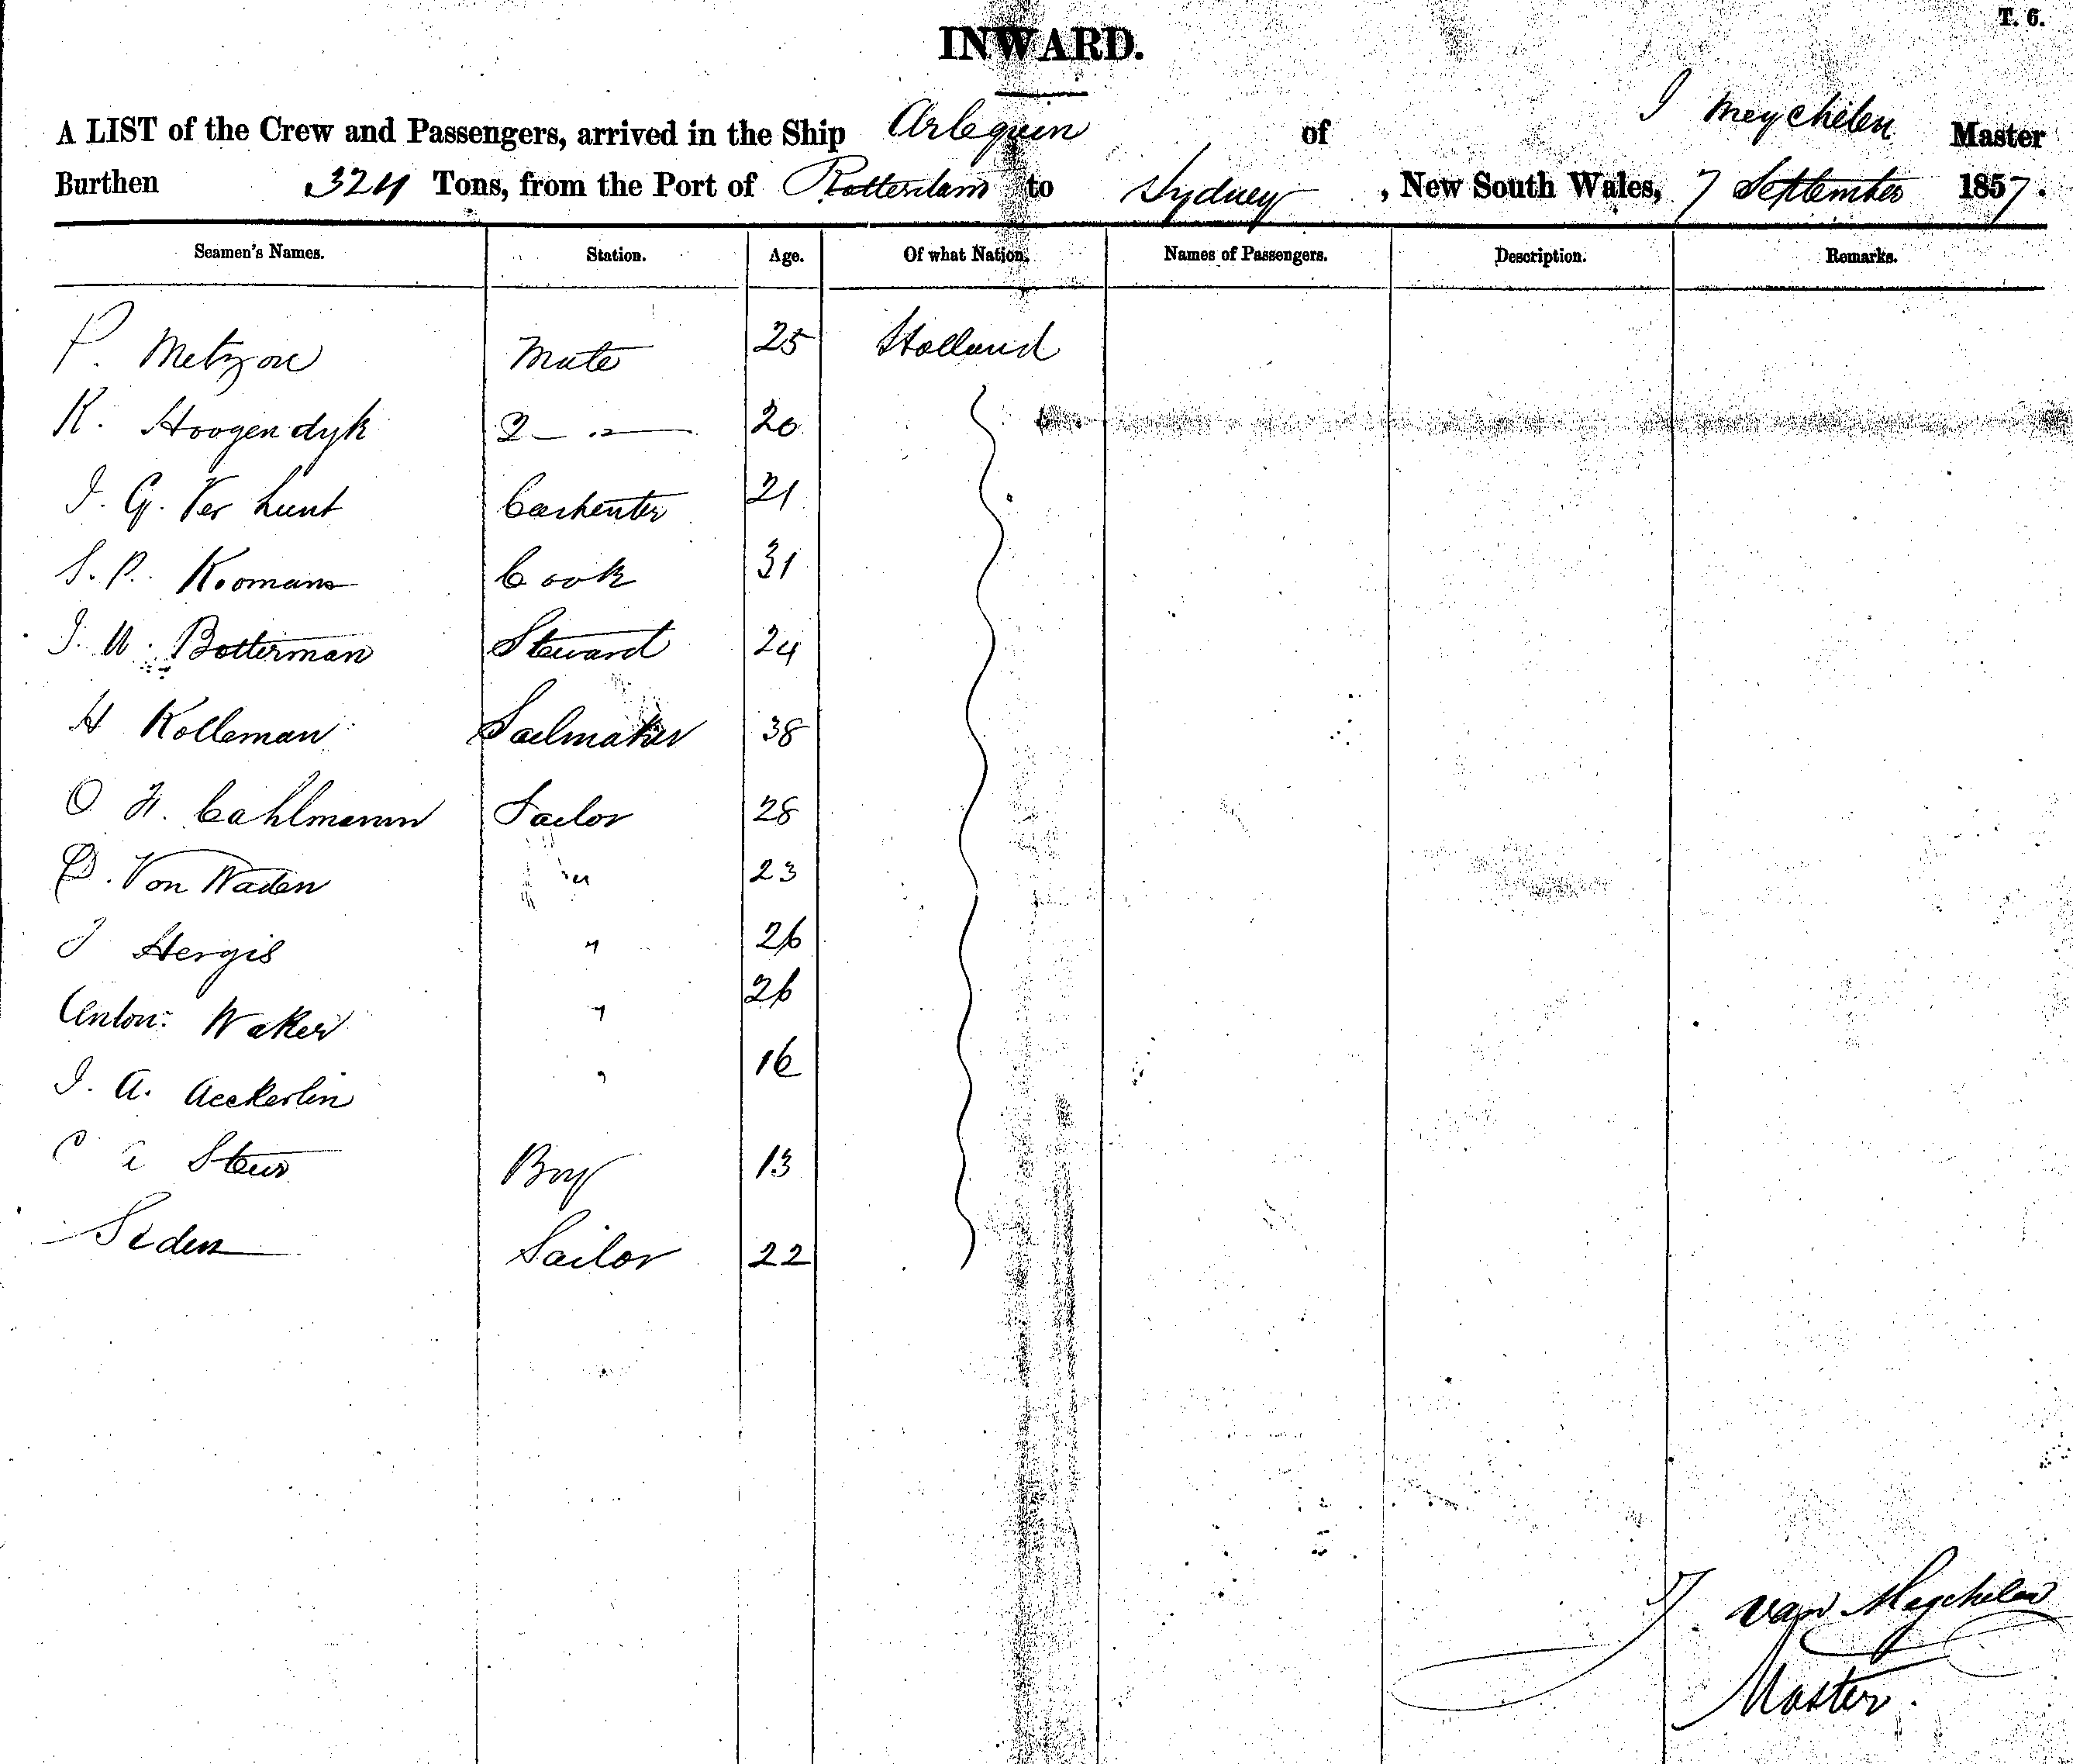 T. 6.
INWARD.
A LIST of the Crew and Passengers, arrived in the Ship Arlequin of J Meychelen Master
Burthen 324 Tons, from the Port of Rotterdam to Sydney, New South Wales, 7 September 1857.
Seamen's Names. Station. Age. Of what Nation. Names of Passengers. Description. Remarks.
P. Metzon Mate 25 Holland
K. Hoogendyk 2 — " — 20
J. G. Ver Lunt Carpenter 21
S. P. Koomans Cook 31
J. W. Botterman Steward 24
H Kolleman Sailmaker 38
O F. Cahlmann Sailor 28
D. Von Waden " 23
J Hergis " 26
Anton: Waker " 26
J. A. Aeckerlin " 16
C A Steur Boy 13
Siden Sailor 22
J. van Meychelen
Master.